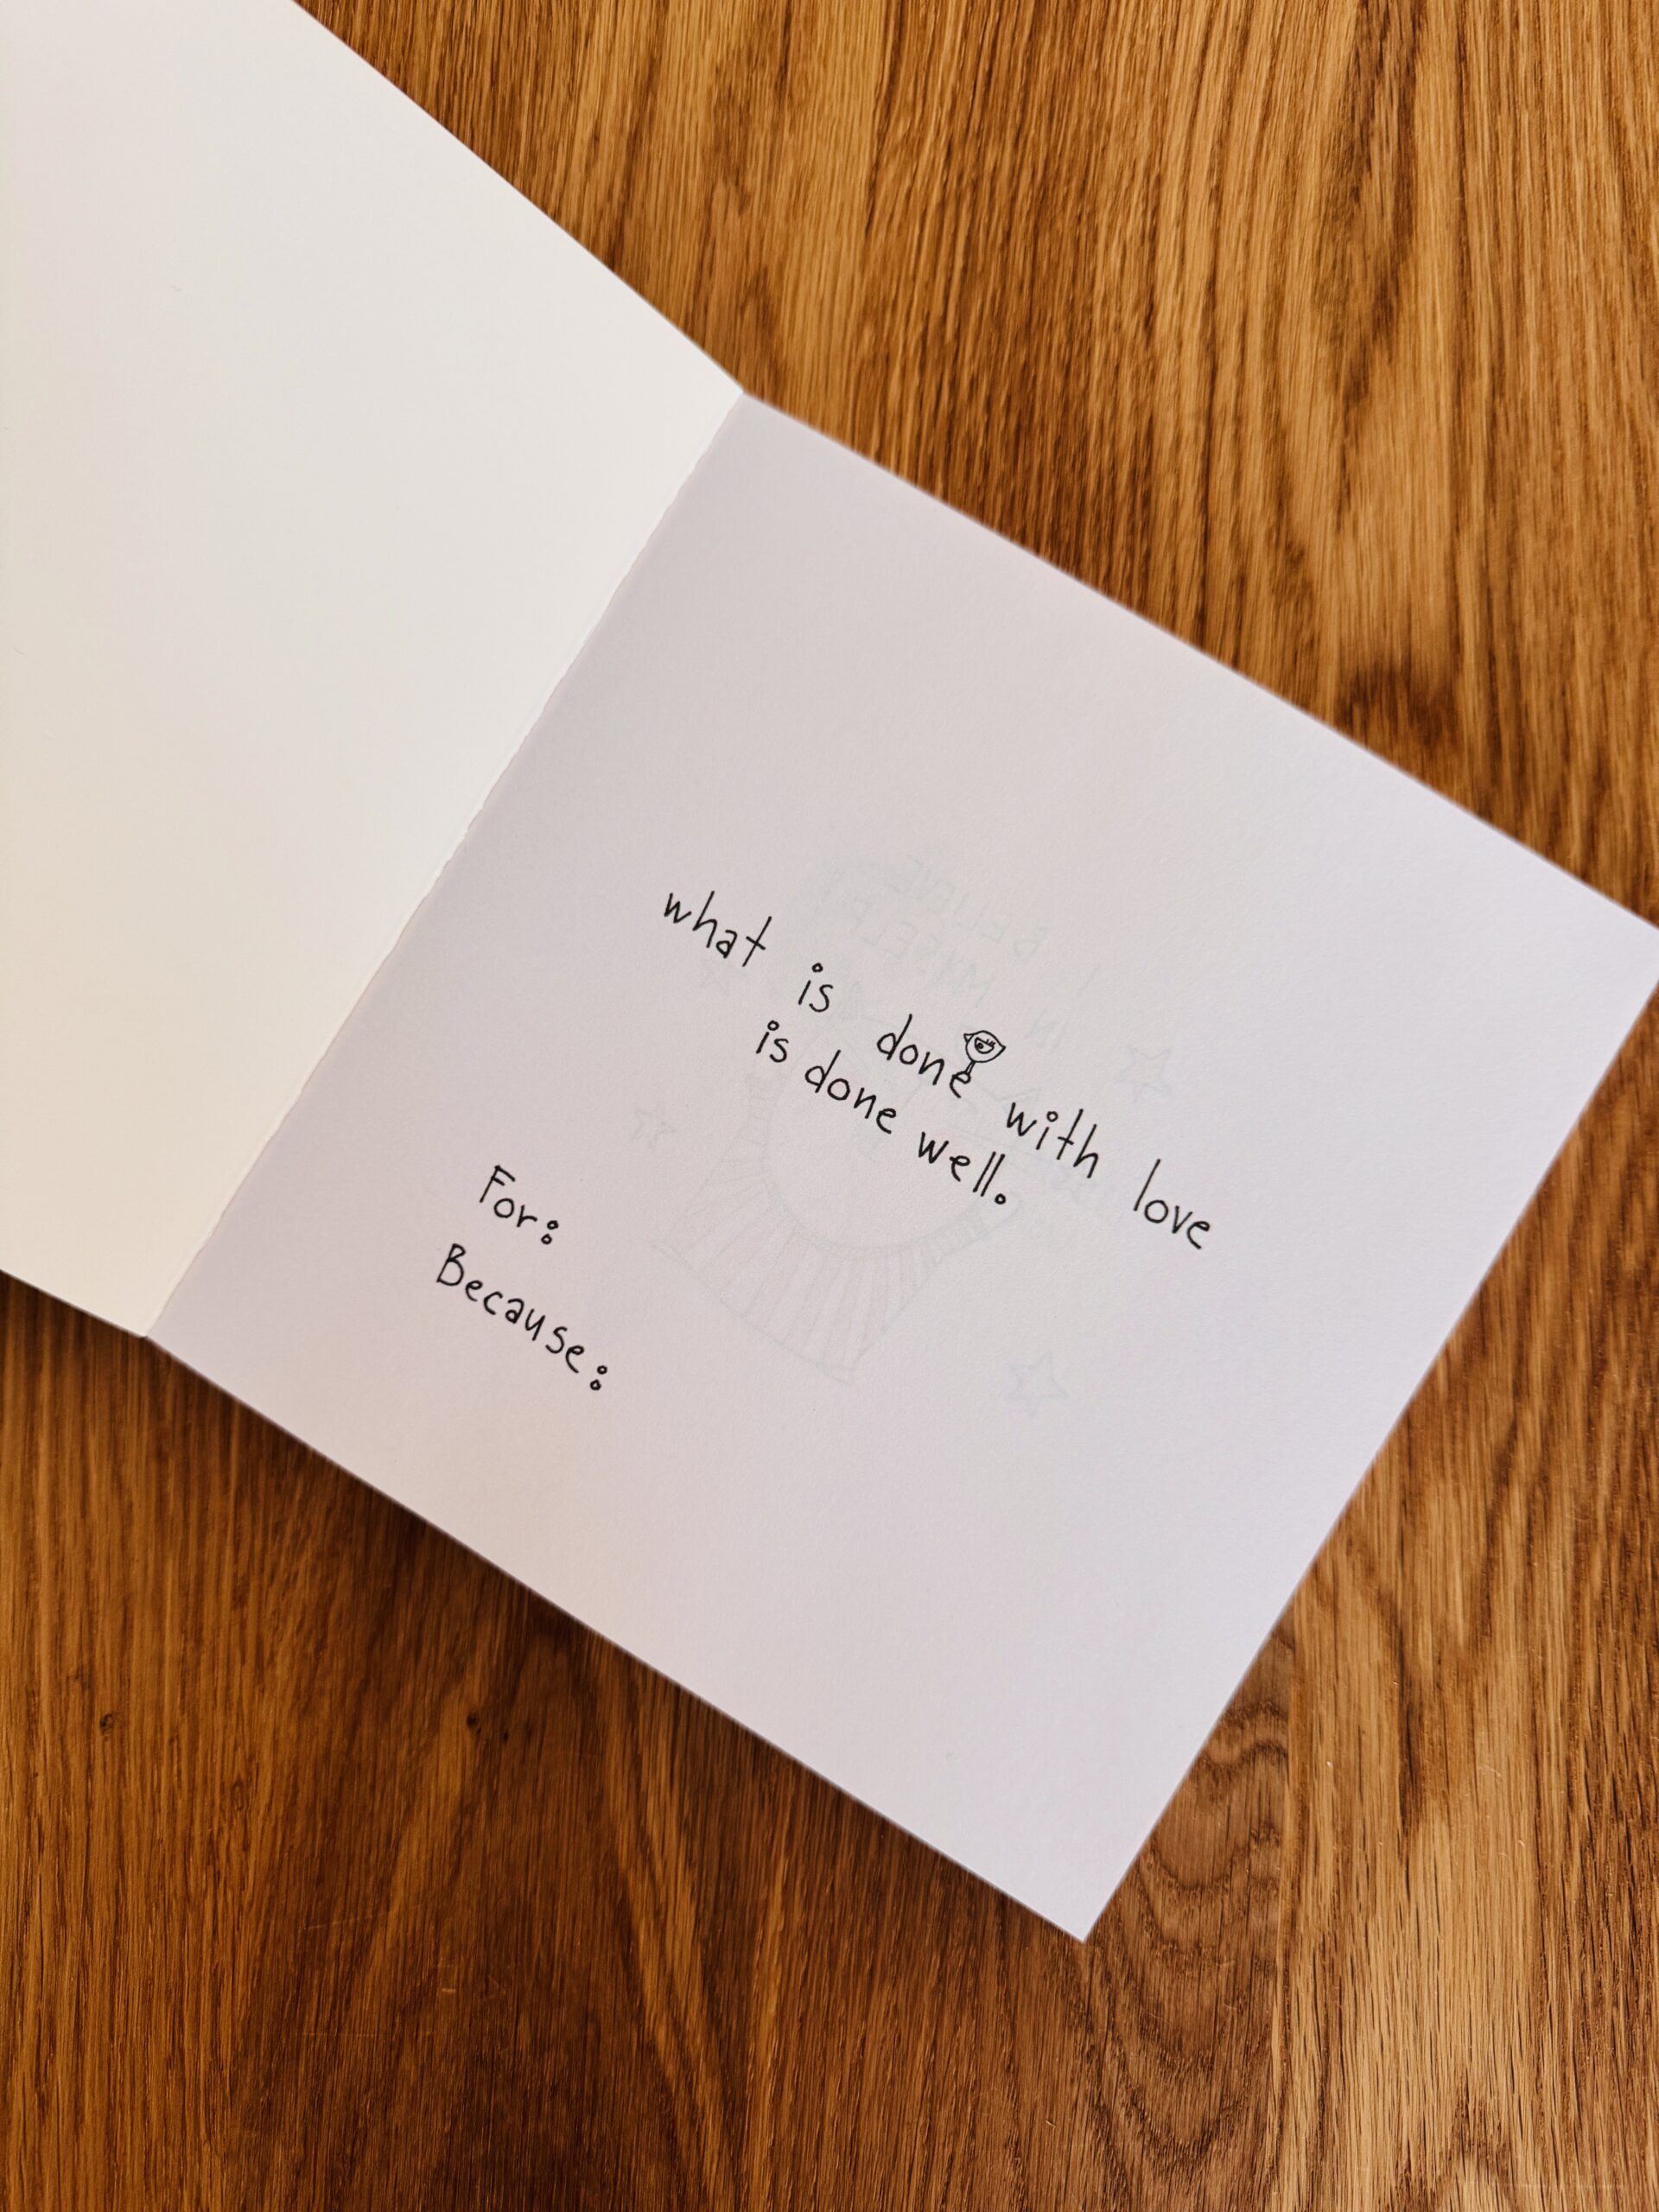 what is done with love
is done well.
For:
Because: